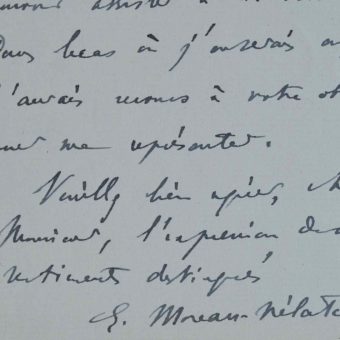 assisté à
Dans le cas où j'aurais
j'aurais recours à votre ob
me représenter.
Veuillez bien agréer,
Monsieur, l'expression de
sentiments distingués
E. Moreau-Nélato